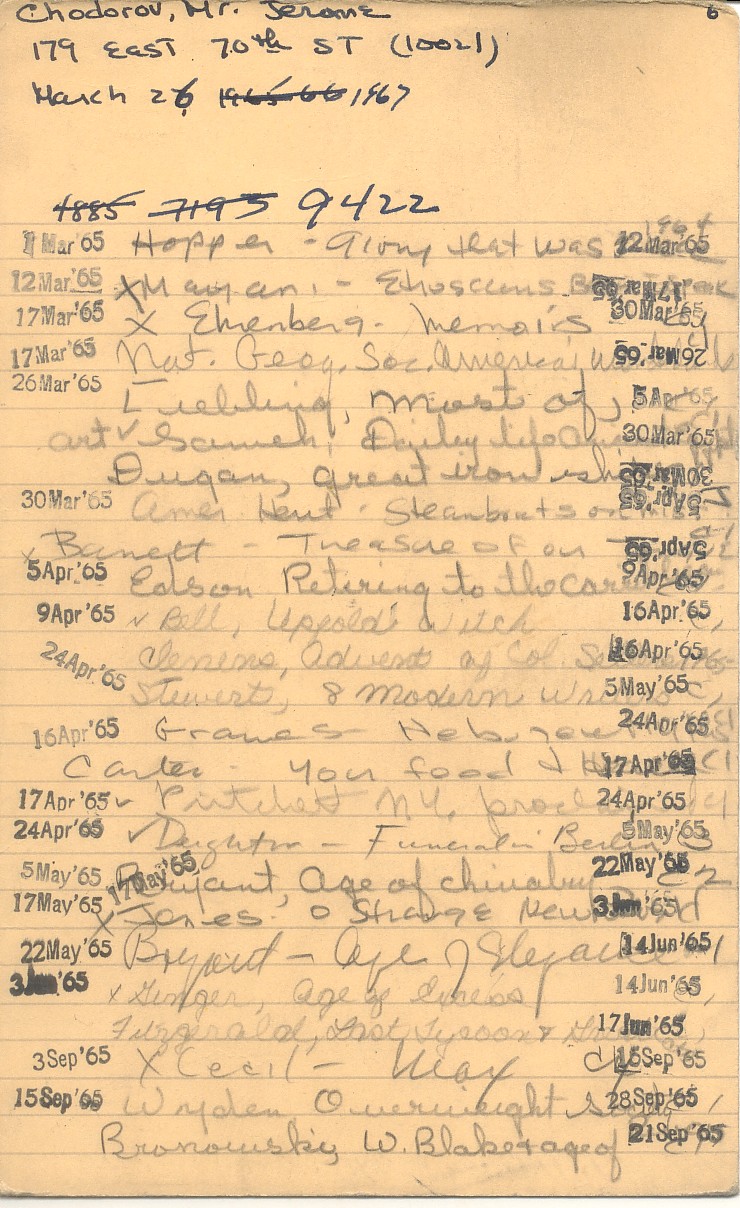 Chodorov, Mr. Jerome 6
179 East 70th ST (10021)
March 26 1965-66 1967
4885 7193 9422
1964
1 Mar'65 Hopper - Glory that was 12 Mar'65
12 Mar'65 X Mayani - Etruscans B Speak 17 Mar'65
17 Mar'65 X Ehrenberg - Memoirs 30 Mar'65
17 Mar'65 Nat. Geog. Soc. America's 26 Mar'65
26 Mar'65 Liebling, Most of, 5 Apr'65
art ✓ Daily life 30 Mar'65
Dugan, great iron ship 30 Mar'65
30 Mar'65 Amer. Herit - Steamboats on Miss 5 Apr'65
x Barrett - Treasure of our 5 Apr'65
5 Apr'65 Edson Retiring to the Apr'65
9 Apr'65 ✓ Bell, Uppold Witch 16 Apr'65
24 Apr'65 Clemens, Advent of Col. 16 Apr'65
Stewart, 8 Modern Writers 5 May'65
16 Apr'65 Graves - Hebrew 24 Apr'65
Carter - Your food & 17 Apr'65
17 Apr'65 ✓ Pritchett N.Y. proclaimed 24 Apr'65
24 Apr'65 ✓ Deighton - Funeral in Berlin 5 May'65
5 May'65 17 May'65 Bryant, Age of chivalry 22 May'65
17 May'65 X Jones - O Strange New World 3 Jun'65
22 May'65 Bryant - Age of Elegance 14 Jun'65
3 Jun'65 x Ginger, Age of Excess 14 Jun'65
Fitzgerald, Last Tycoon & 17 Jun'65
3 Sep'65 X Cecil - Max 15 Sep'65
15 Sep'65 Wyden Overweight Society 28 Sep'65
Bronowski, W. Blake & age of 21 Sep'65